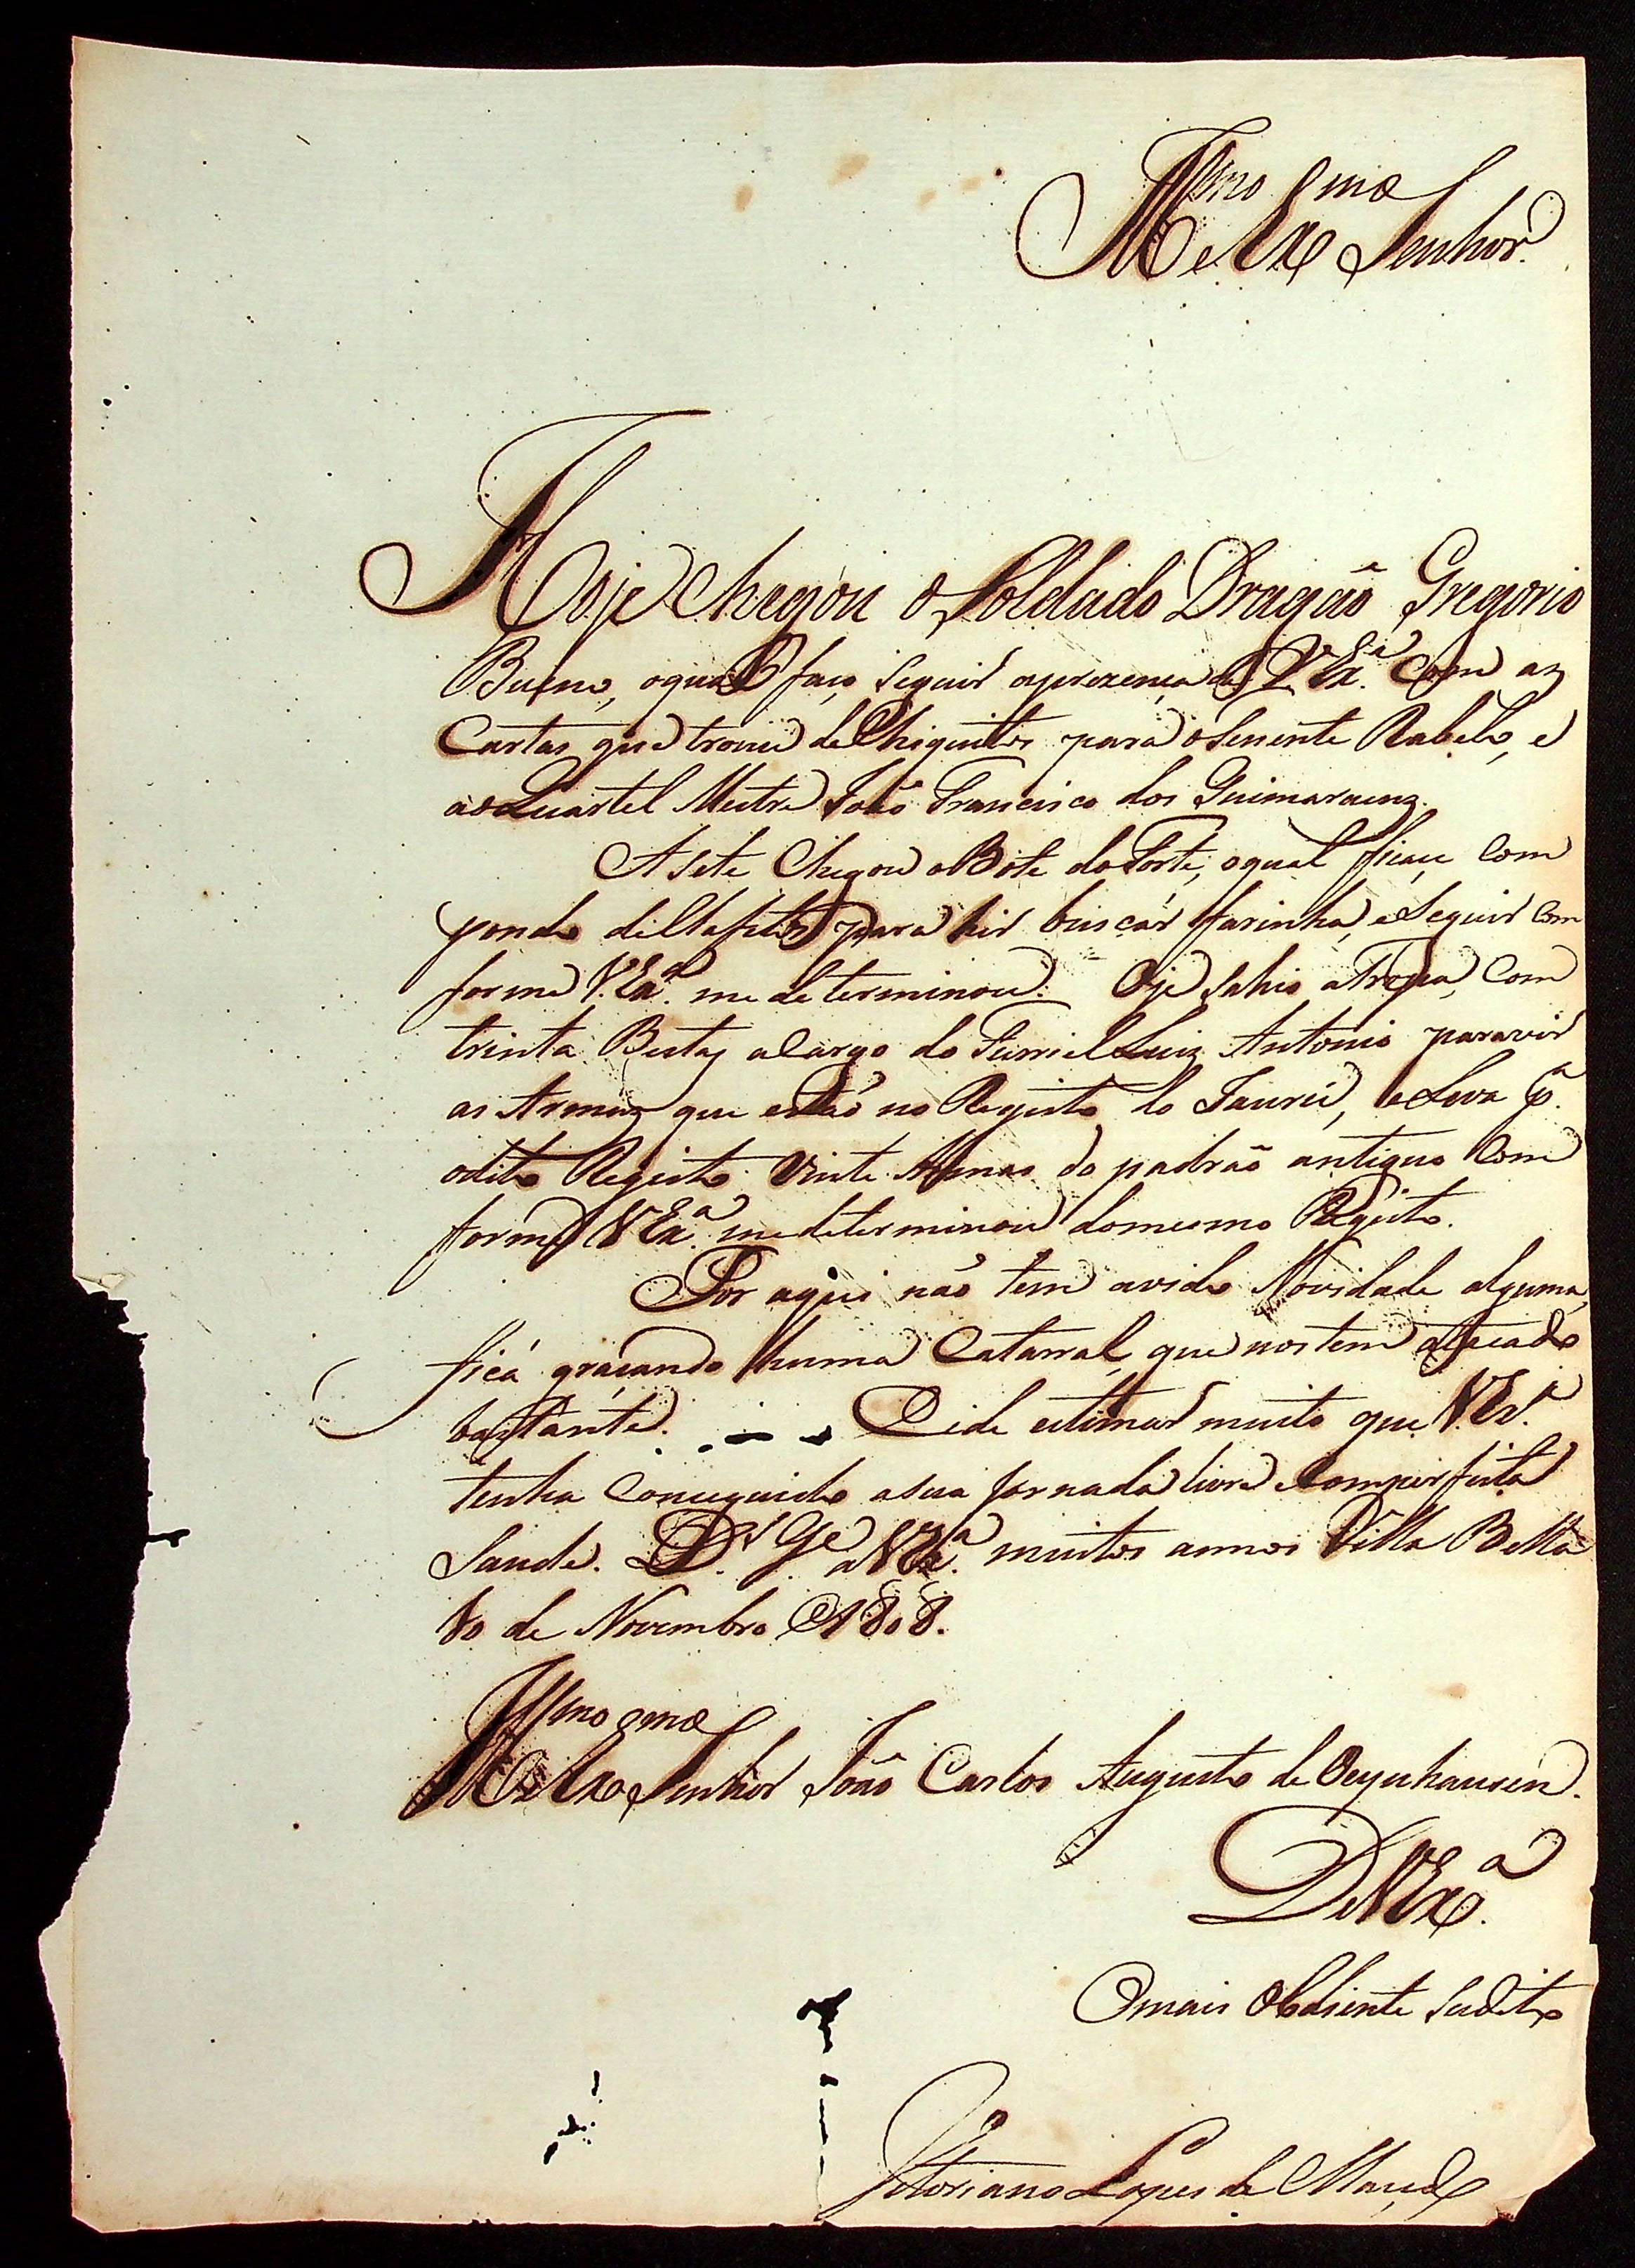 Illmo e Exmo Senhor.
Hoje Chegou o Soldado Dragaõ Gregorio
Bueno, oqual faço seguir aprezença de V Exa. Com az
Cartas que trouue de Chiquitos para oTenente Rabelo, e
aoQuartel Mestre Joaõ Francisco dos Guimaraenz.
A sete Chegou oBote doForte, oqual ficáu Com
pondo para hir buscár farinha, eSeguir Com
forme V. Exa. me determinou. Oje Sahio aTropa, Com
trinta Bestaz aCargo do Furriel Luiz Antonio paravir
as Armaz que estaõ no Registo do Jaurú, eLeva pa.
odito Registo Vinte Armas do padraõ antiguo Com
forme V Exa. medeterminou domesmo Registo.
Por aqui naõ tem avido Novidade alguma,
ficá graçando huma Catarral, que nos tem atacado
bastante. Eide estimar muito que V. Exa.
tenha Conseguido asua Jornada livre eComperfeita
Saude. Ds. Ge. a V Exa. muitos annos Villa Bella
10 de Novembro de 1808.
Illmo e Exmo Senhor Joaõ Carlos Augusto de Oeynhausen.
De V Exa.
Omais Obdiente Sudito
Vitoriano Lopes de Macedo